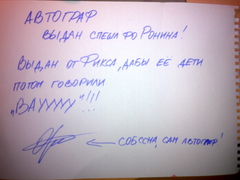 АВТОГРАФ
ВЫДАН СПЕШЛ ФО РОНИНА!
ВЫДАН ОТ ФИКСА, ДАБЫ ЕЕ ДЕТИ
ПОТОМ ГОВОРИЛИ
„ВАУУУУ"!!!
← СОБССНА, САМ АВТОГРАФ!